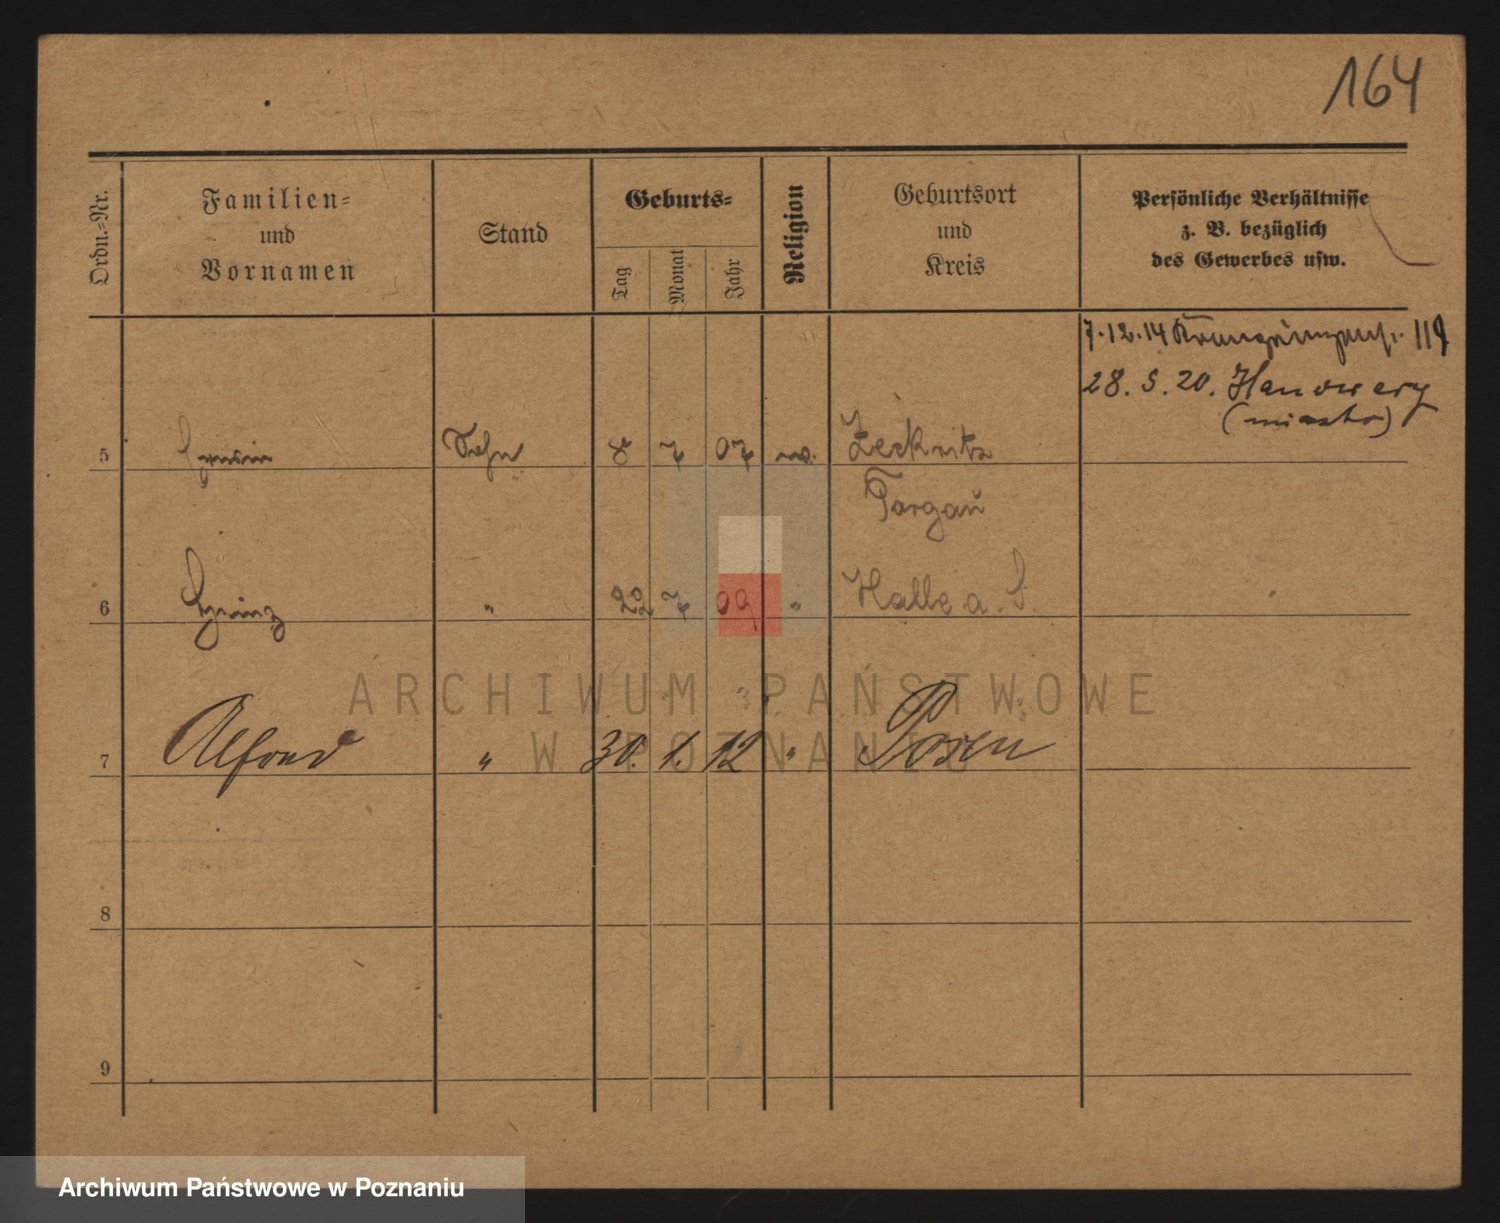 164
Ordn.-Nr.
Familien-
und
Vornamen
Stand
Geburts-
Tag
Monat
Jahr
Religion
Geburtsort
und
Kreis
Persönliche Verhältnisse
z. B. bezüglich
des Gewerbes usw.
7.12.14 Kronprinzenstr. 119
28. 5. 20. Hanower
(miasto)
5 Erwin Sohn 8 7 07 ev. Zeckritz
Torgau
6 Heinz " 22 7 09 " Halle a. S.
7 Alfred " 30. 1. 12 " Posen
8
9
ARCHIWUM PAŃSTWOWE
W POZNANIU
Archiwum Państwowe w Poznaniu